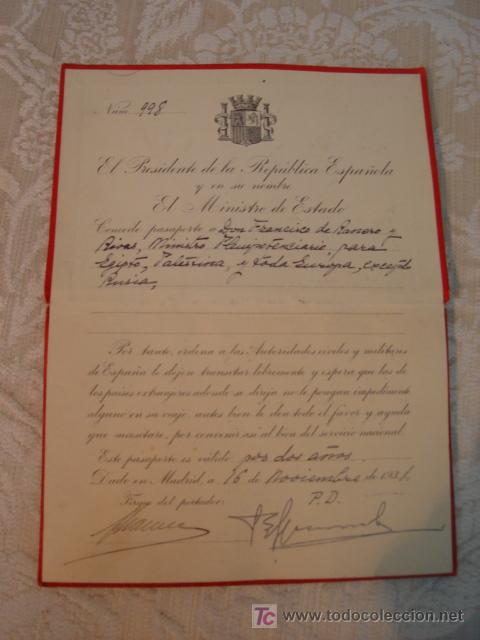 Núm. 998
El Presidente de la República Española
y en su nombre
El Ministro de Estado
Concede pasaporte a Don Francisco de Ranero y
Rivas, Ministro Plenipotenciario, para
Egipto, Palestina, y toda Europa, excepto
Rusia,
Por tanto, ordena a las Autoridades civiles y militares
de España le dejen transitar libremente y espera que las de
los países extranjeros adonde se dirija no le pongan impedimento
alguno en su viaje, antes bien le den todo el favor y ayuda
que necesitare, por convenir así al bien del servicio nacional.
Este pasaporte es válido por dos años
Dado en Madrid, a 16 de Noviembre de 193
Firma del portador: P.D.
TC todocoleccion
www.todocoleccion.net